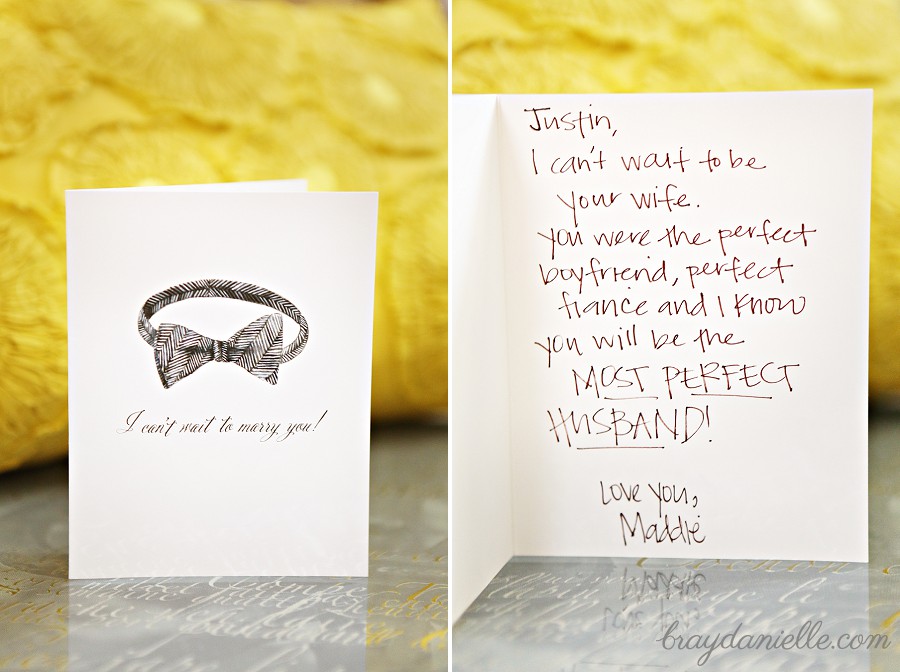 I can't wait to marry you!
Justin,
I can't wait to be
your wife.
you were the perfect
boyfriend, perfect
fiance and I know
you will be the
MOST PERFECT
HUSBAND!
Love you,
Maddie
braydanielle.com